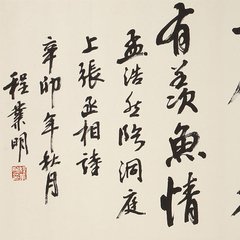 有羨魚情
孟浩然臨洞庭
上張丞相詩
辛卯年秋月
程業明